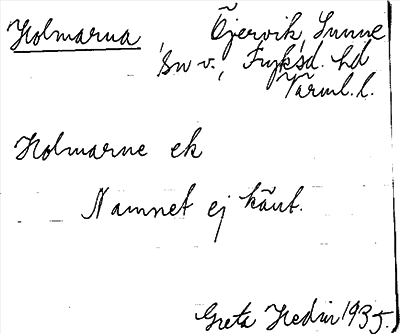 Holmarna Öjervik, Sunne
Sn v., Fryksd. hd
Värml. l.
Holmarne ek
Namnet ej känt.
Greta Hedin 1935.